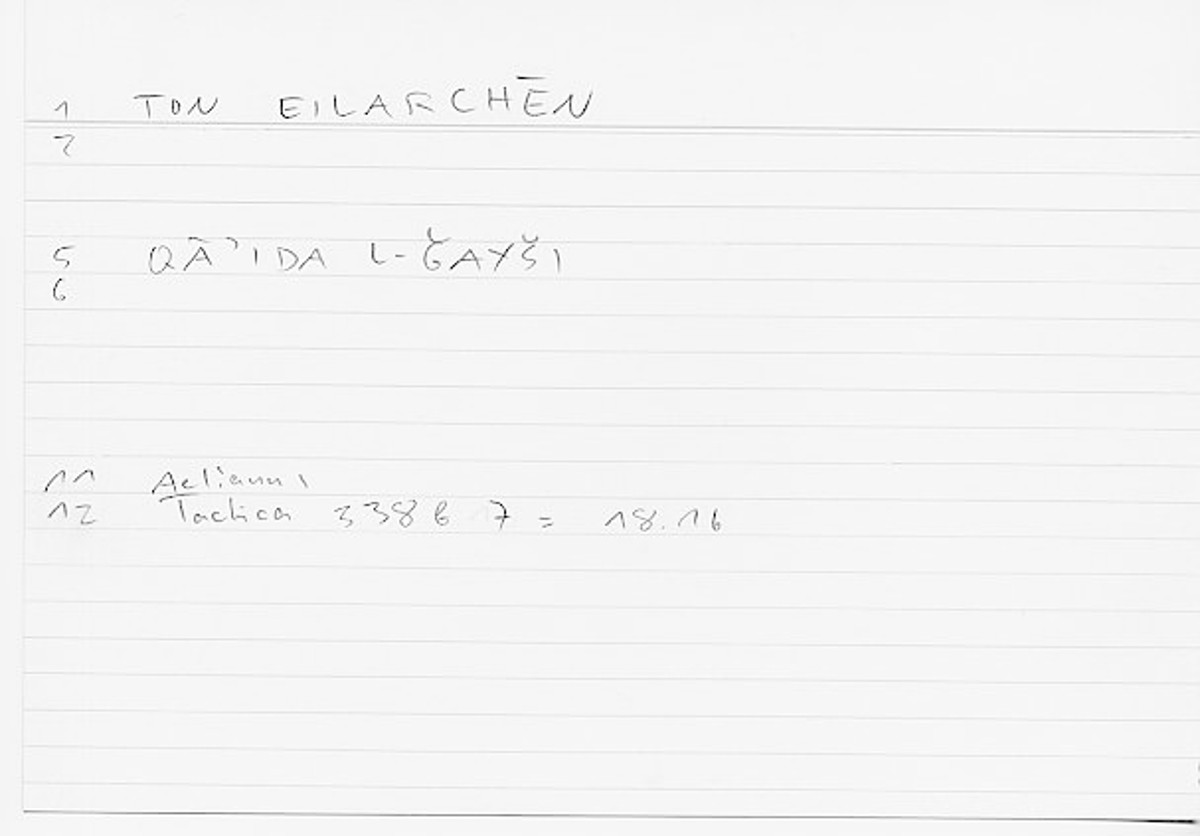 1 TON EILARCHĒN
2
5 QĀʾIDA L-ǦAYŠI
6
11 Aelianus
12 Tactica 338 6 7 = 18.16